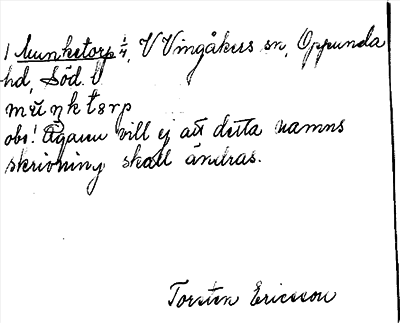 1 Munketorp 1/4, V Vingåkers sn, Oppunda
hd, Söd. l
mɯŋktɘrp
obs! Ägaren vill ej att detta namns
skrivning skall ändras.
Torsten Ericsson